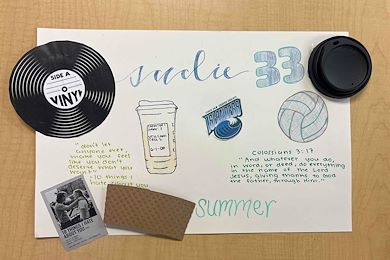 SIDE A
VINYL
sadie
33
"don't let
anyone ever
make you feel
like you don't
deserve what you
want"
10 things I
hate about you
Colossians 3:17
"And whatever you do,
in word, or deed, do everything
in the name of the Lord
Jesus, giving thanks to God
the father, through Him."
10 THINGS I HATE
ABOUT YOU
summer